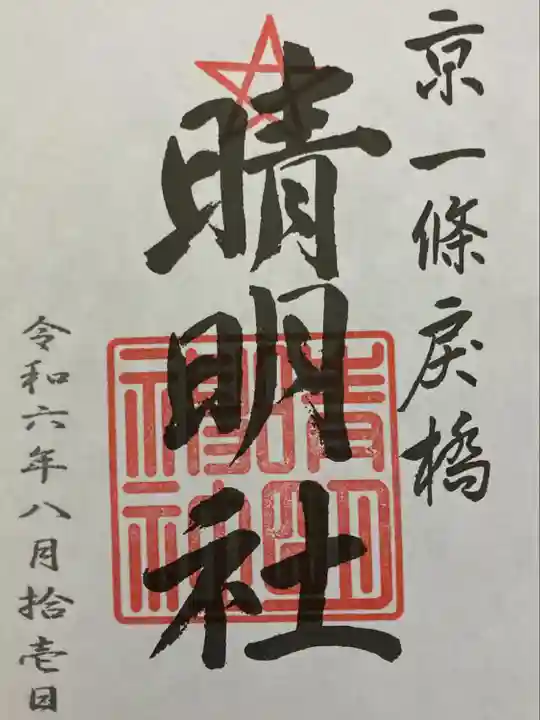 京一條戻橋
晴明社
令和六年八月拾壱日